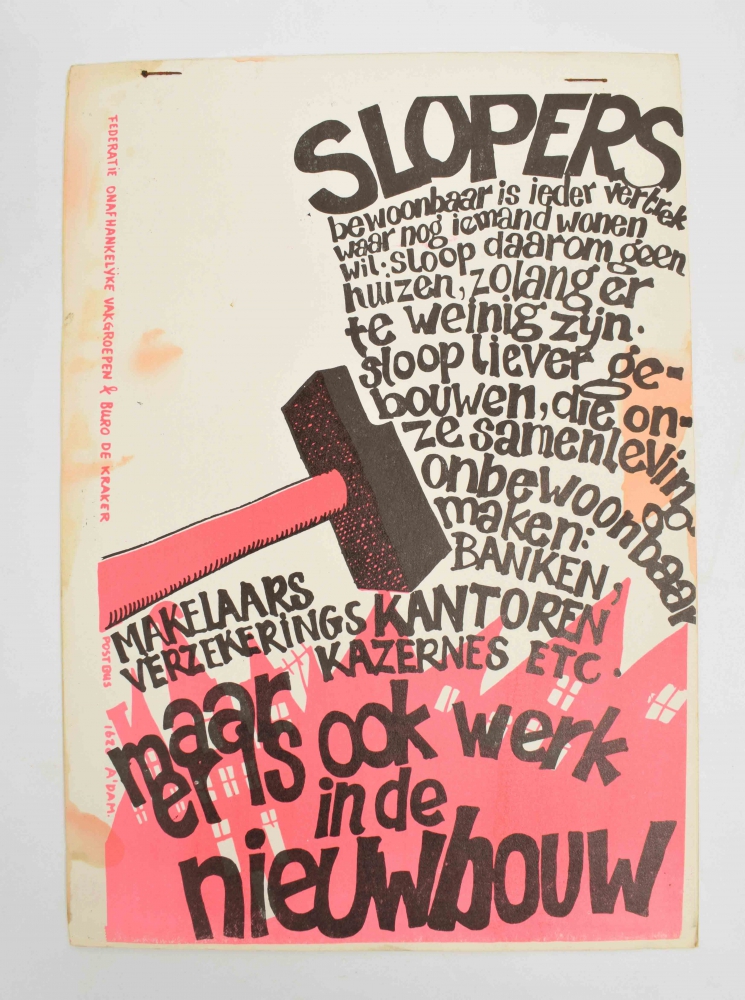 SLOPERS
bewoonbaar is ieder vertrek
waar nog iemand wonen
wil. sloop daarom geen
huizen, zolang er
te weinig zijn.
sloop liever ge-
bouwen, die on-
ze samenleving
onbewoonbaar
maken:
BANKEN,
MAKELAARS
VERZEKERINGS KANTOREN
KAZERNES ETC.
maar
er is ook werk
in de
nieuwbouw
FEDERATIE ONAFHANKELYKE VAKGROEPEN & BURO DE KRAKER
POSTBUS A'DAM.